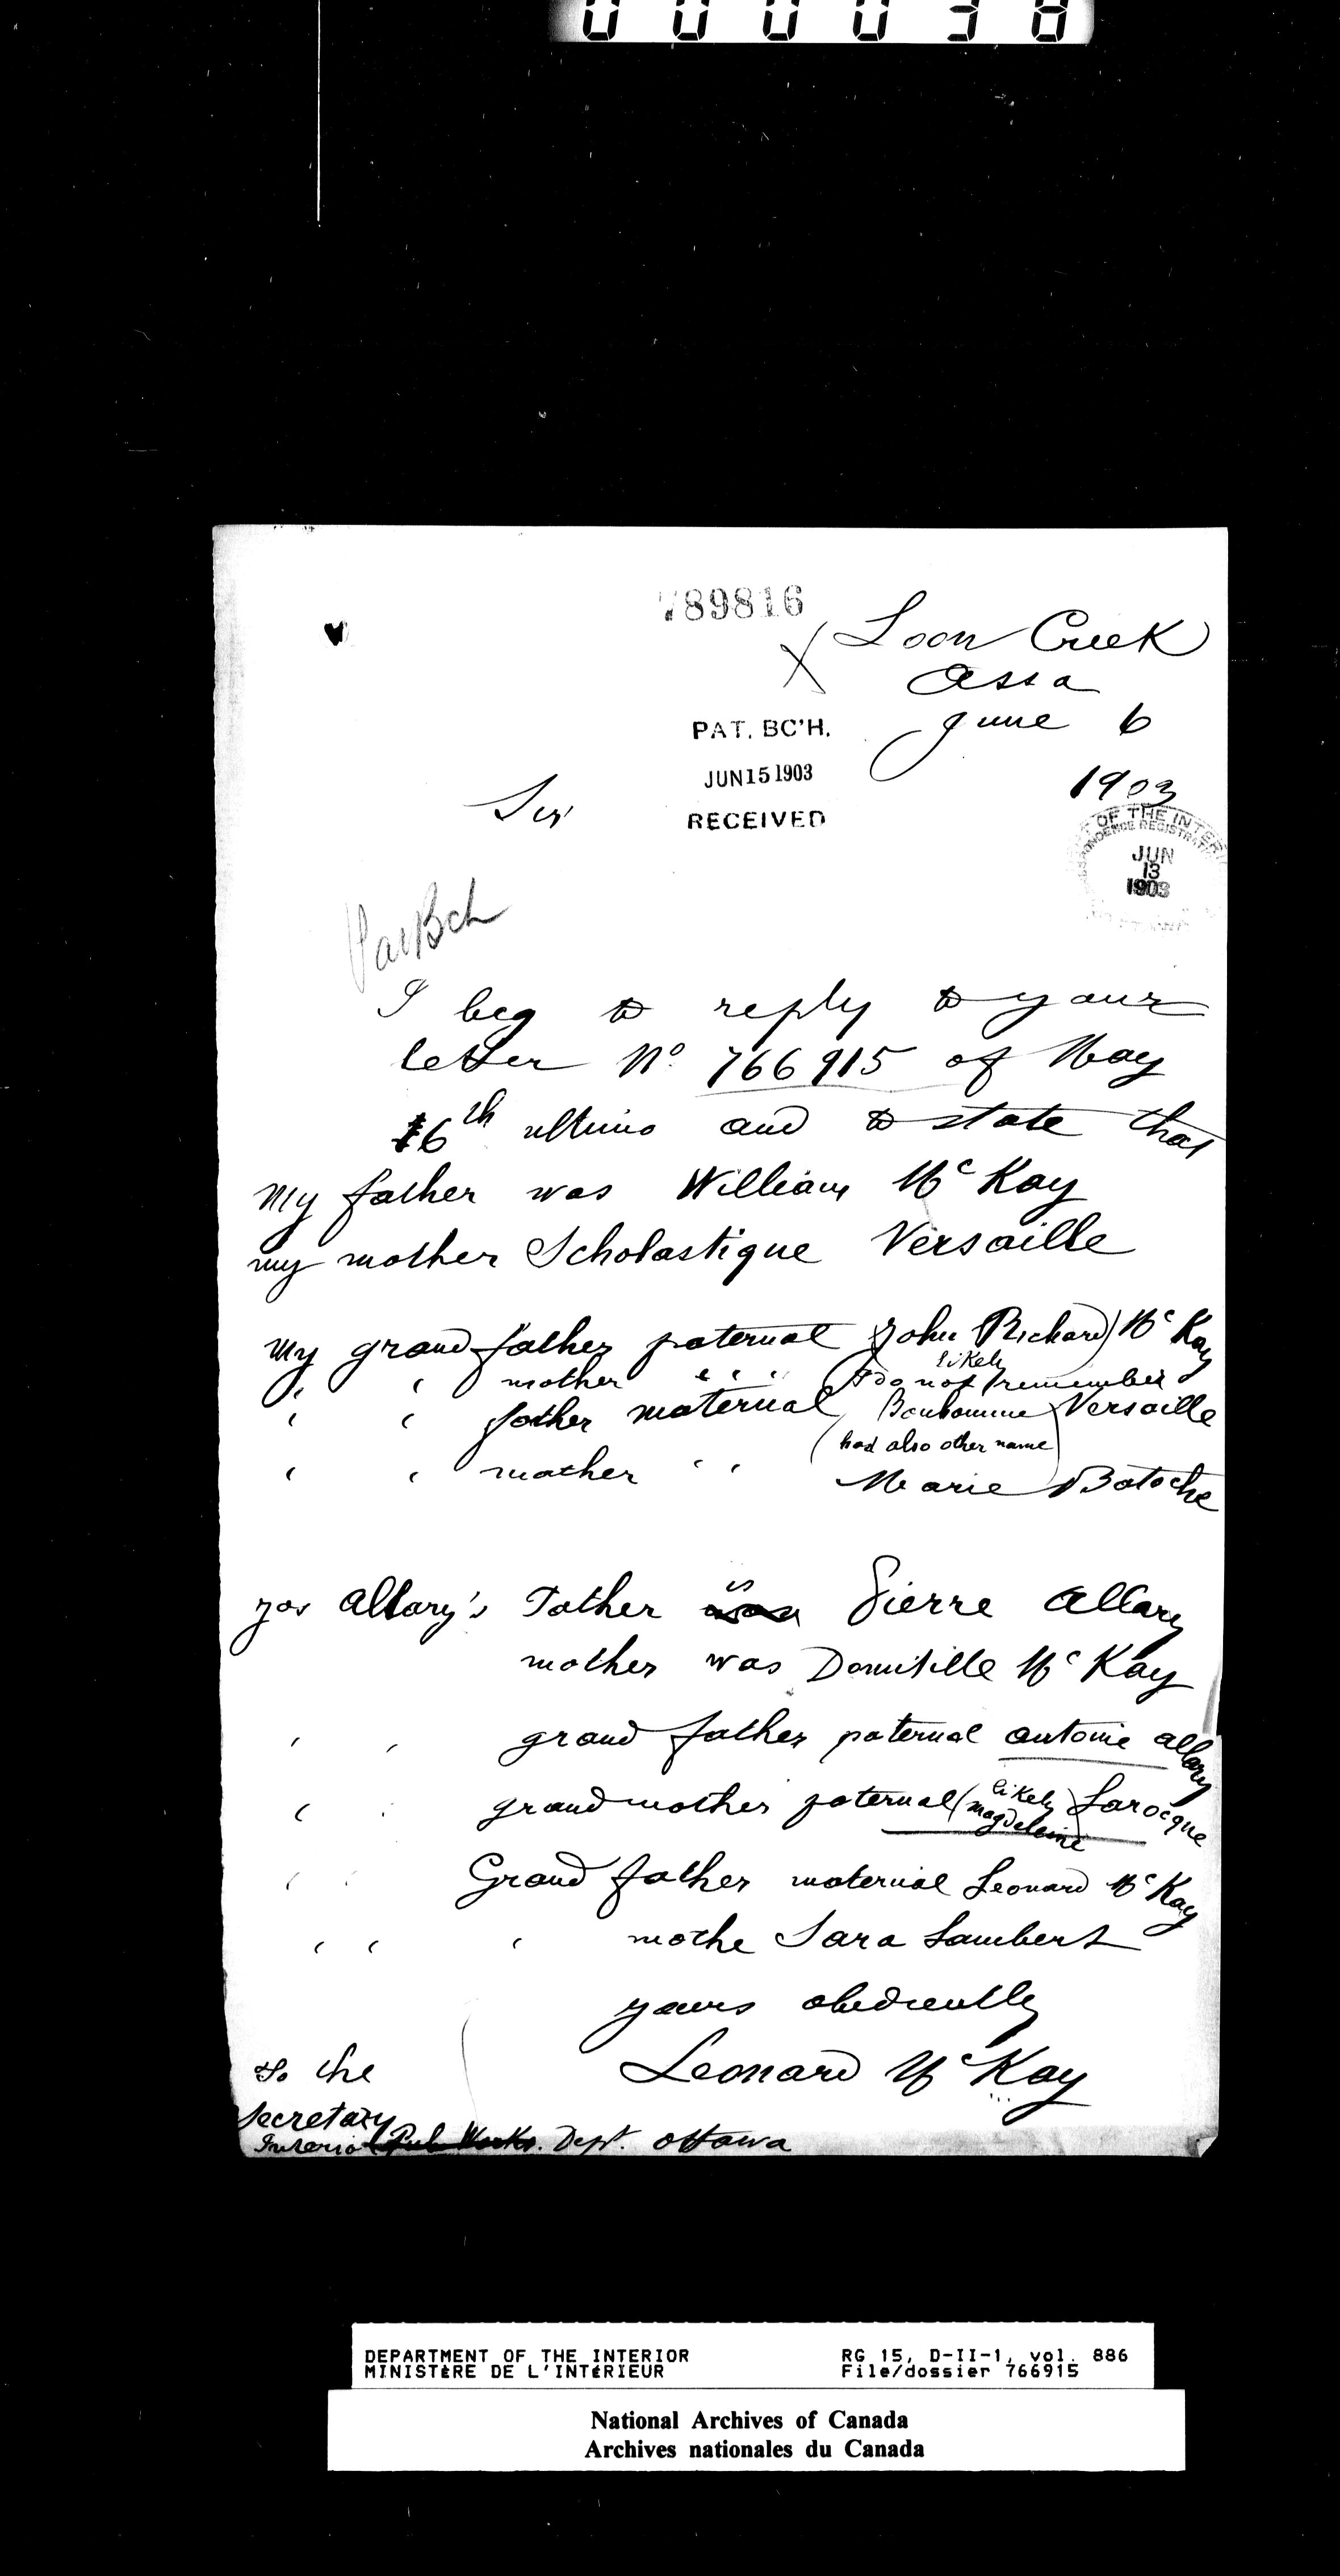 000038
789816
Loon Creek
Assa
June 6
1903
PAT. BC'H.
JUN 15 1903
RECEIVED
Sir
OF THE INTER
JUN
13
1903
Pat Bch
I beg to reply to your
letter No 766915 of May
16th ultimo and to state that
My father was William Mc Kay
my mother Scholastique Versaille
My grand father paternal John (likely Richard) Mc Kay
" " mother " " " I do not remember
" " father maternal Bonhomme Versaille
(had also other name)
" " mother " " Marie Batoche
Jos Allary's Father is Pierre Allary
mother was Domitille Mc Kay
" " grand father paternal Antoine Allary
" " grandmother paternal (likely Magdeleine) Larocque
" " Grand father maternal Leonard Mc Kay
" " " mothe Sara Lambert
yours obediently
Leonard Mc Kay
To the
Secretary
Interior Pub Works. Dept. Ottawa
DEPARTMENT OF THE INTERIOR RG 15, D-II-1, vol. 886
MINISTÈRE DE L'INTÉRIEUR File/dossier 766915
National Archives of Canada
Archives nationales du Canada